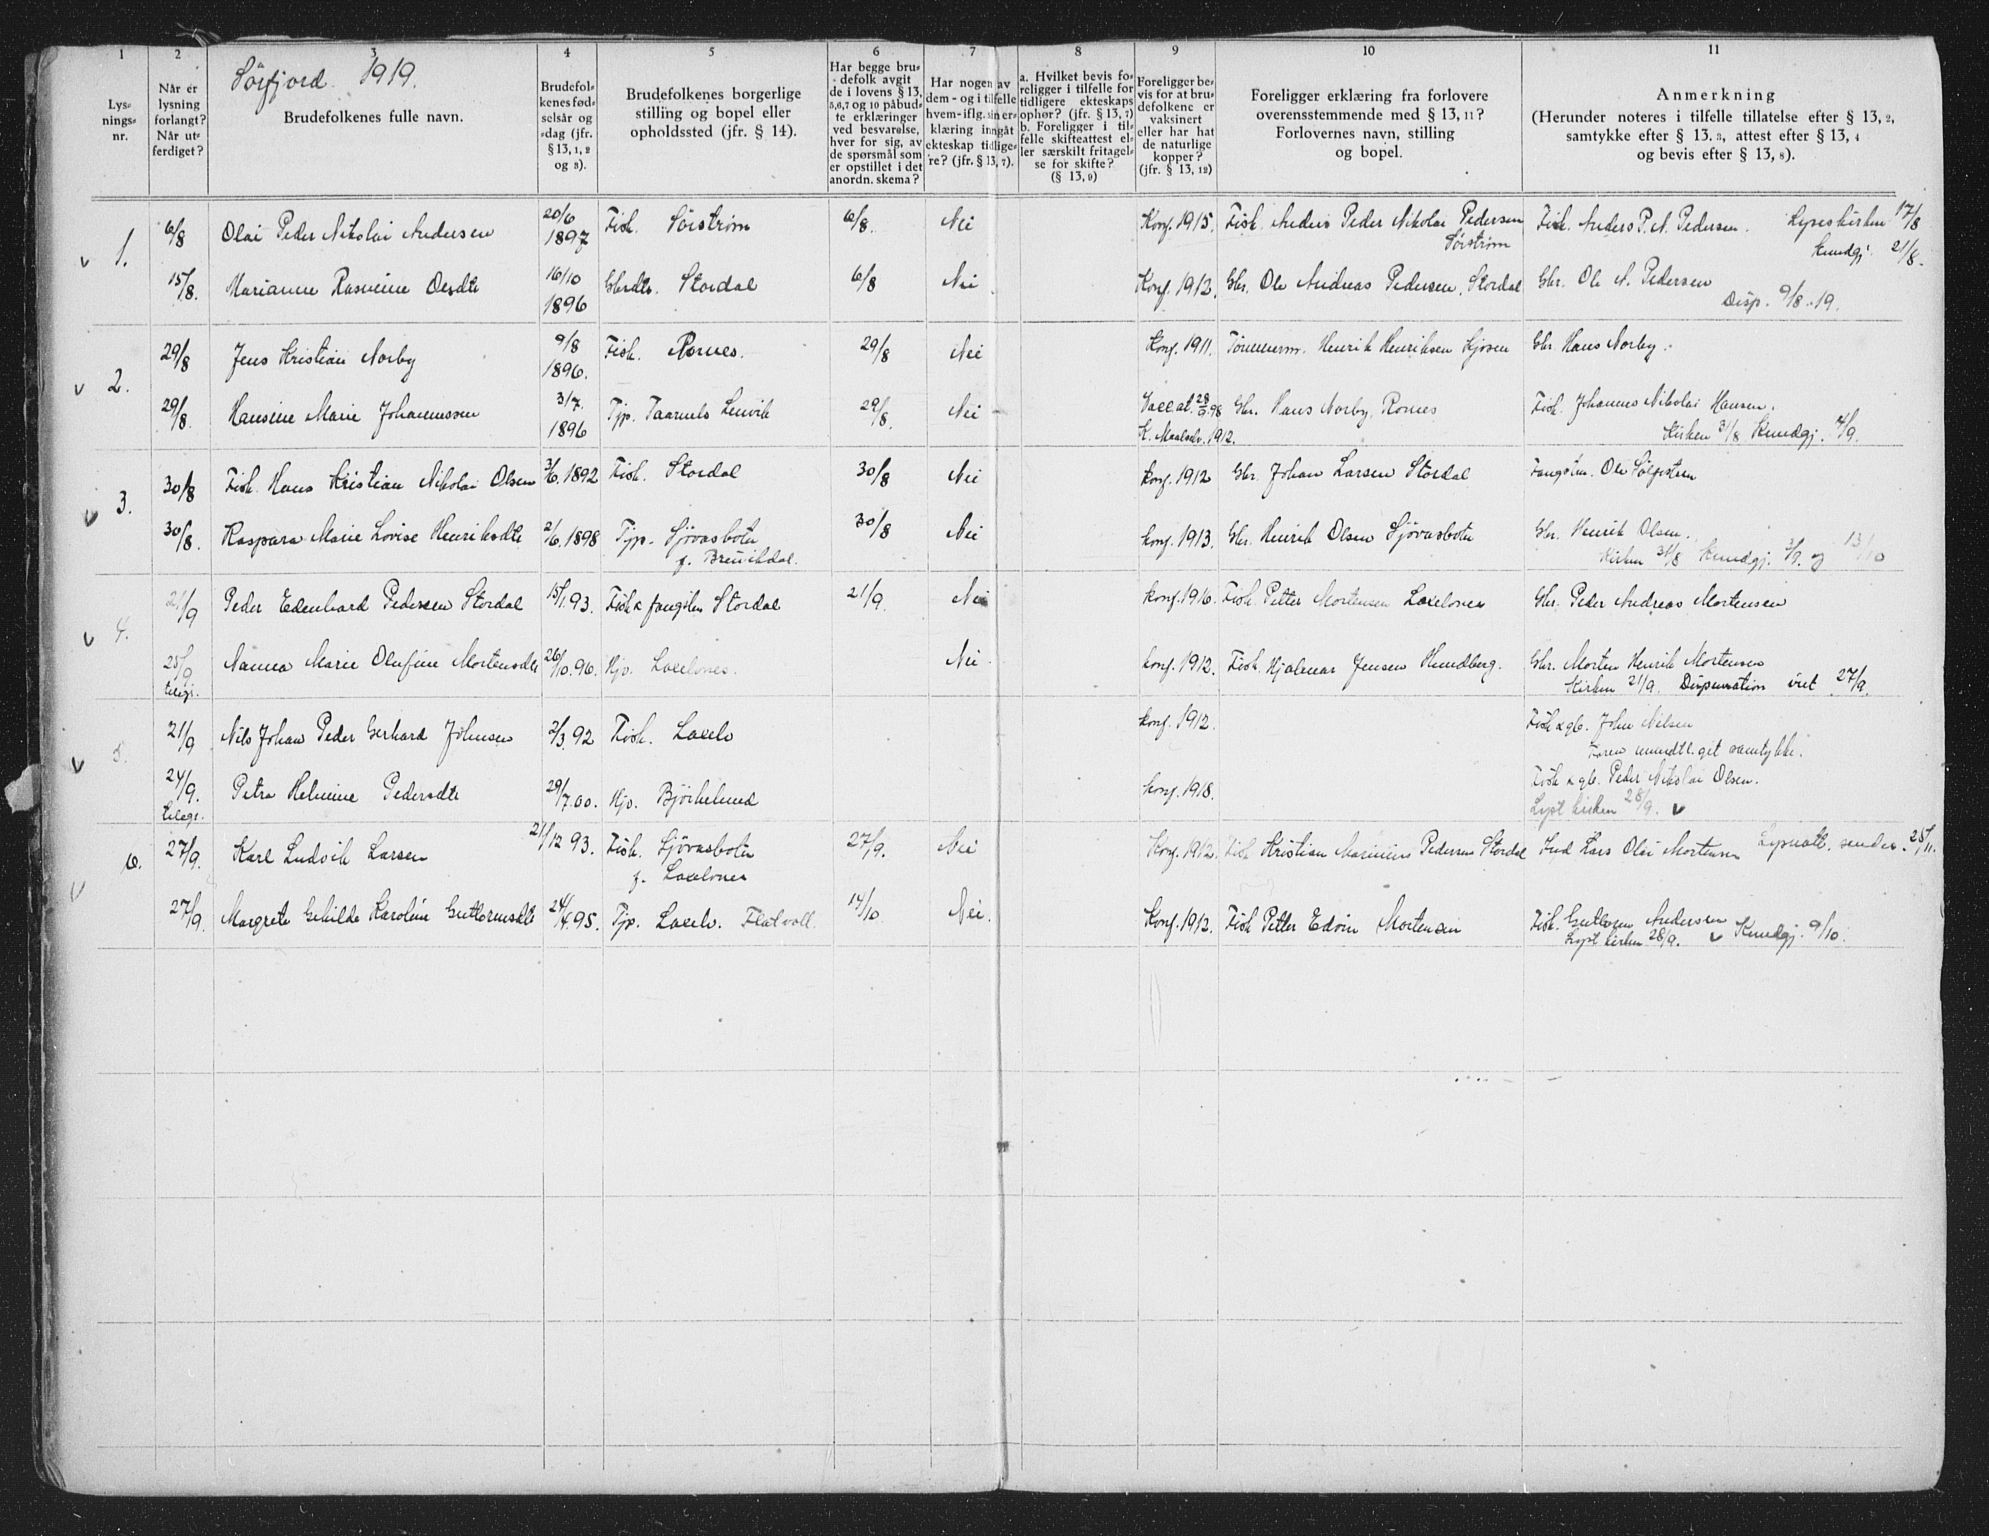 1 2 3 4 5 6 7 8 9 10 11
Sörfjord 1919.
Lys-
nings-
nr.
Når er
lysning
forlangt?
Når ut-
ferdiget?
Brudefolkenes fulle navn.
Brudefol-
kenes fød-
selsår og
-dag (jfr.
§ 13, 1, 2
og 3).
Brudefolkenes borgerlige
stilling og bopel eller
opholdssted (jfr. § 14).
Har begge bru-
defolk avgit
de i lovens § 13,
5,6,7 og 10 påbud-
te erklæringer
ved besvarelse,
hver for sig, av
de spørsmål som
er opstillet i det
anordn. skema?
Har nogen av
dem - og i tilfelle
hvem - iflg. sin er-
klæring inngåt
ekteskap tidlige-
re? (jfr. § 13, 7).
a. Hvilket bevis fo-
religger i tilfelle for
tidligere ekteskaps
ophør? (jfr. § 13, 7)
b. Foreligger i til-
felle skifteattest el-
ler særskilt fritagel-
se for skifte?
(§ 13, 9)
Foreligger be-
vis for at bru-
defolkene er
vaksinert
eller har hat
de naturlige
kopper?
(jfr. § 13, 12)
Foreligger erklæring fra forlovere
overensstemmende med § 13, 11?
Forlovernes navn, stilling
og bopel.
Anmerkning
(Herunder noteres i tilfelle tillatelse efter § 13, 2,
samtykke efter § 13, 3, attest efter § 13, 4
og bevis efter § 13, 8).
1. 6/8 Olai Peder Nikolai Andersen 20/6 1897 Fisk. Sörström 6/8. Nei Konf. 1915. Fisk. Anders Peder Nikolai Pedersen Sörström Fisk. Anders P. N. Pedersen. Lyses kirken 17/8
Kundgj. 21/8.
15/8. Marianne Rasmine Olesdtr 16/10 1896 Gbrdtr. Stordal 6/8 Nei Konf. 1912. Gbr. Ole Andreas Pedersen, Stordal Gbr. Ole A. Pedersen
Disp. 9/8-19.
2. 29/8 Jens Kristian Norby 9/8 1896. Fisk. Rornes. 29/8 Nei Konf. 1911. Tömmerm. Henrik Henriksen Sjöven Gbr. Hans Norby.
29/8. Hansine Marie Johannessen 3/7. 1896 Tjp. Taarnels Lenvik 29/8. Nei Vacc at. 28/9 98 Gbr. Hans Norby, Rornes Fisk. Johannes Nikolai Hansen.
K. Maalselv. 1912. Kirken 31/8 Kundgj. 4/9.
3. 30/8 Fisk. Hans Kristian Nikolai Olsen 3/6. 1892 Fisk. Stordal 30/8 Nei konf. 1912 Gbr. Johan Larsen Stordal Fangstm. Ole
30/8. Kaspara Marie Lovise Henriksdtr 2/6. 1898 Tjp. Sjövasbotn 30/8 Nei konf. 1913. Gbr. Henrik Olsen Sjövasbotn Gbr. Henrik Olsen.
f. Breivikdal. Kirken 31/8 Kundgj. 3/9. og 13/10
4. 21/9 Peder Edenhard Pedersen Stordal 15/1. 93. Fisk & fangstm Stordal 21/9. Nei konf. 1916. Fisk. Petter Mortensen Laxelvnes Gbr. Peder Andreas Mortensen
25/9 telegr. Nanna Marie Olufine Mortensdtr 26/10. 96. Hjv. Laxelvnes. Nei konf. 1912. Fisk Hjalmar Jensen Hundberg. Gbr. Morten Henrik Mortensen
Kirken 21/9. Dispensation ivet 27/9.
5. 21/9 Nils Johan Peder Gerhard Johnsen 2/3. 92 Fisk. Laxelv konf. 1912. Fisk & gb. John Nilsen
mundtl. git samtykke.
24/9. telegr. Petra Helmine Pedersdtr 29/7. 00. Hjv. Björkelund konf. 1918. Fisk & gb. Peder Nikolai Olsen.
Lyst kirken 28/9. v
6. 27/9. Karl Ludvik Larsen 21/12 93. Fisk. Sjövasbotn 27/9. Nei Konf. 1912. Fisk Kristian Marinius Pedersen Stordal Ind. Lars Olai Mortensen Lysnatt. sendes. 25/11.
f. Laxelvnes
27/9. Margrete Gehilde Karoline Guttormsdtr 24/4. 95. Tjp. Laxelv. Flatvoll. 14/10 Nei. Konf. 1912. Fisk Petter Edvin Mortensen Fisk. Guttorm Andersen
Lyst kirken 28/9. v Kundgj. 9/10.